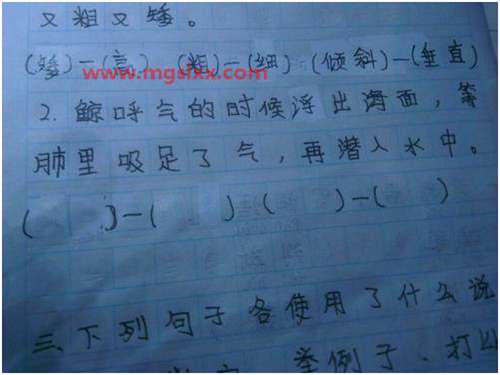 又粗又矮。
(矮)—(高) (粗)—(细) (倾斜)—(垂直)
www.mgsixx.com
2. 鲸呼气的时候浮出海面，等
肺里吸足了气，再潜入水中。
( )—( ) ( )—( )
三、下列句子各使用了什么说
举例子、打